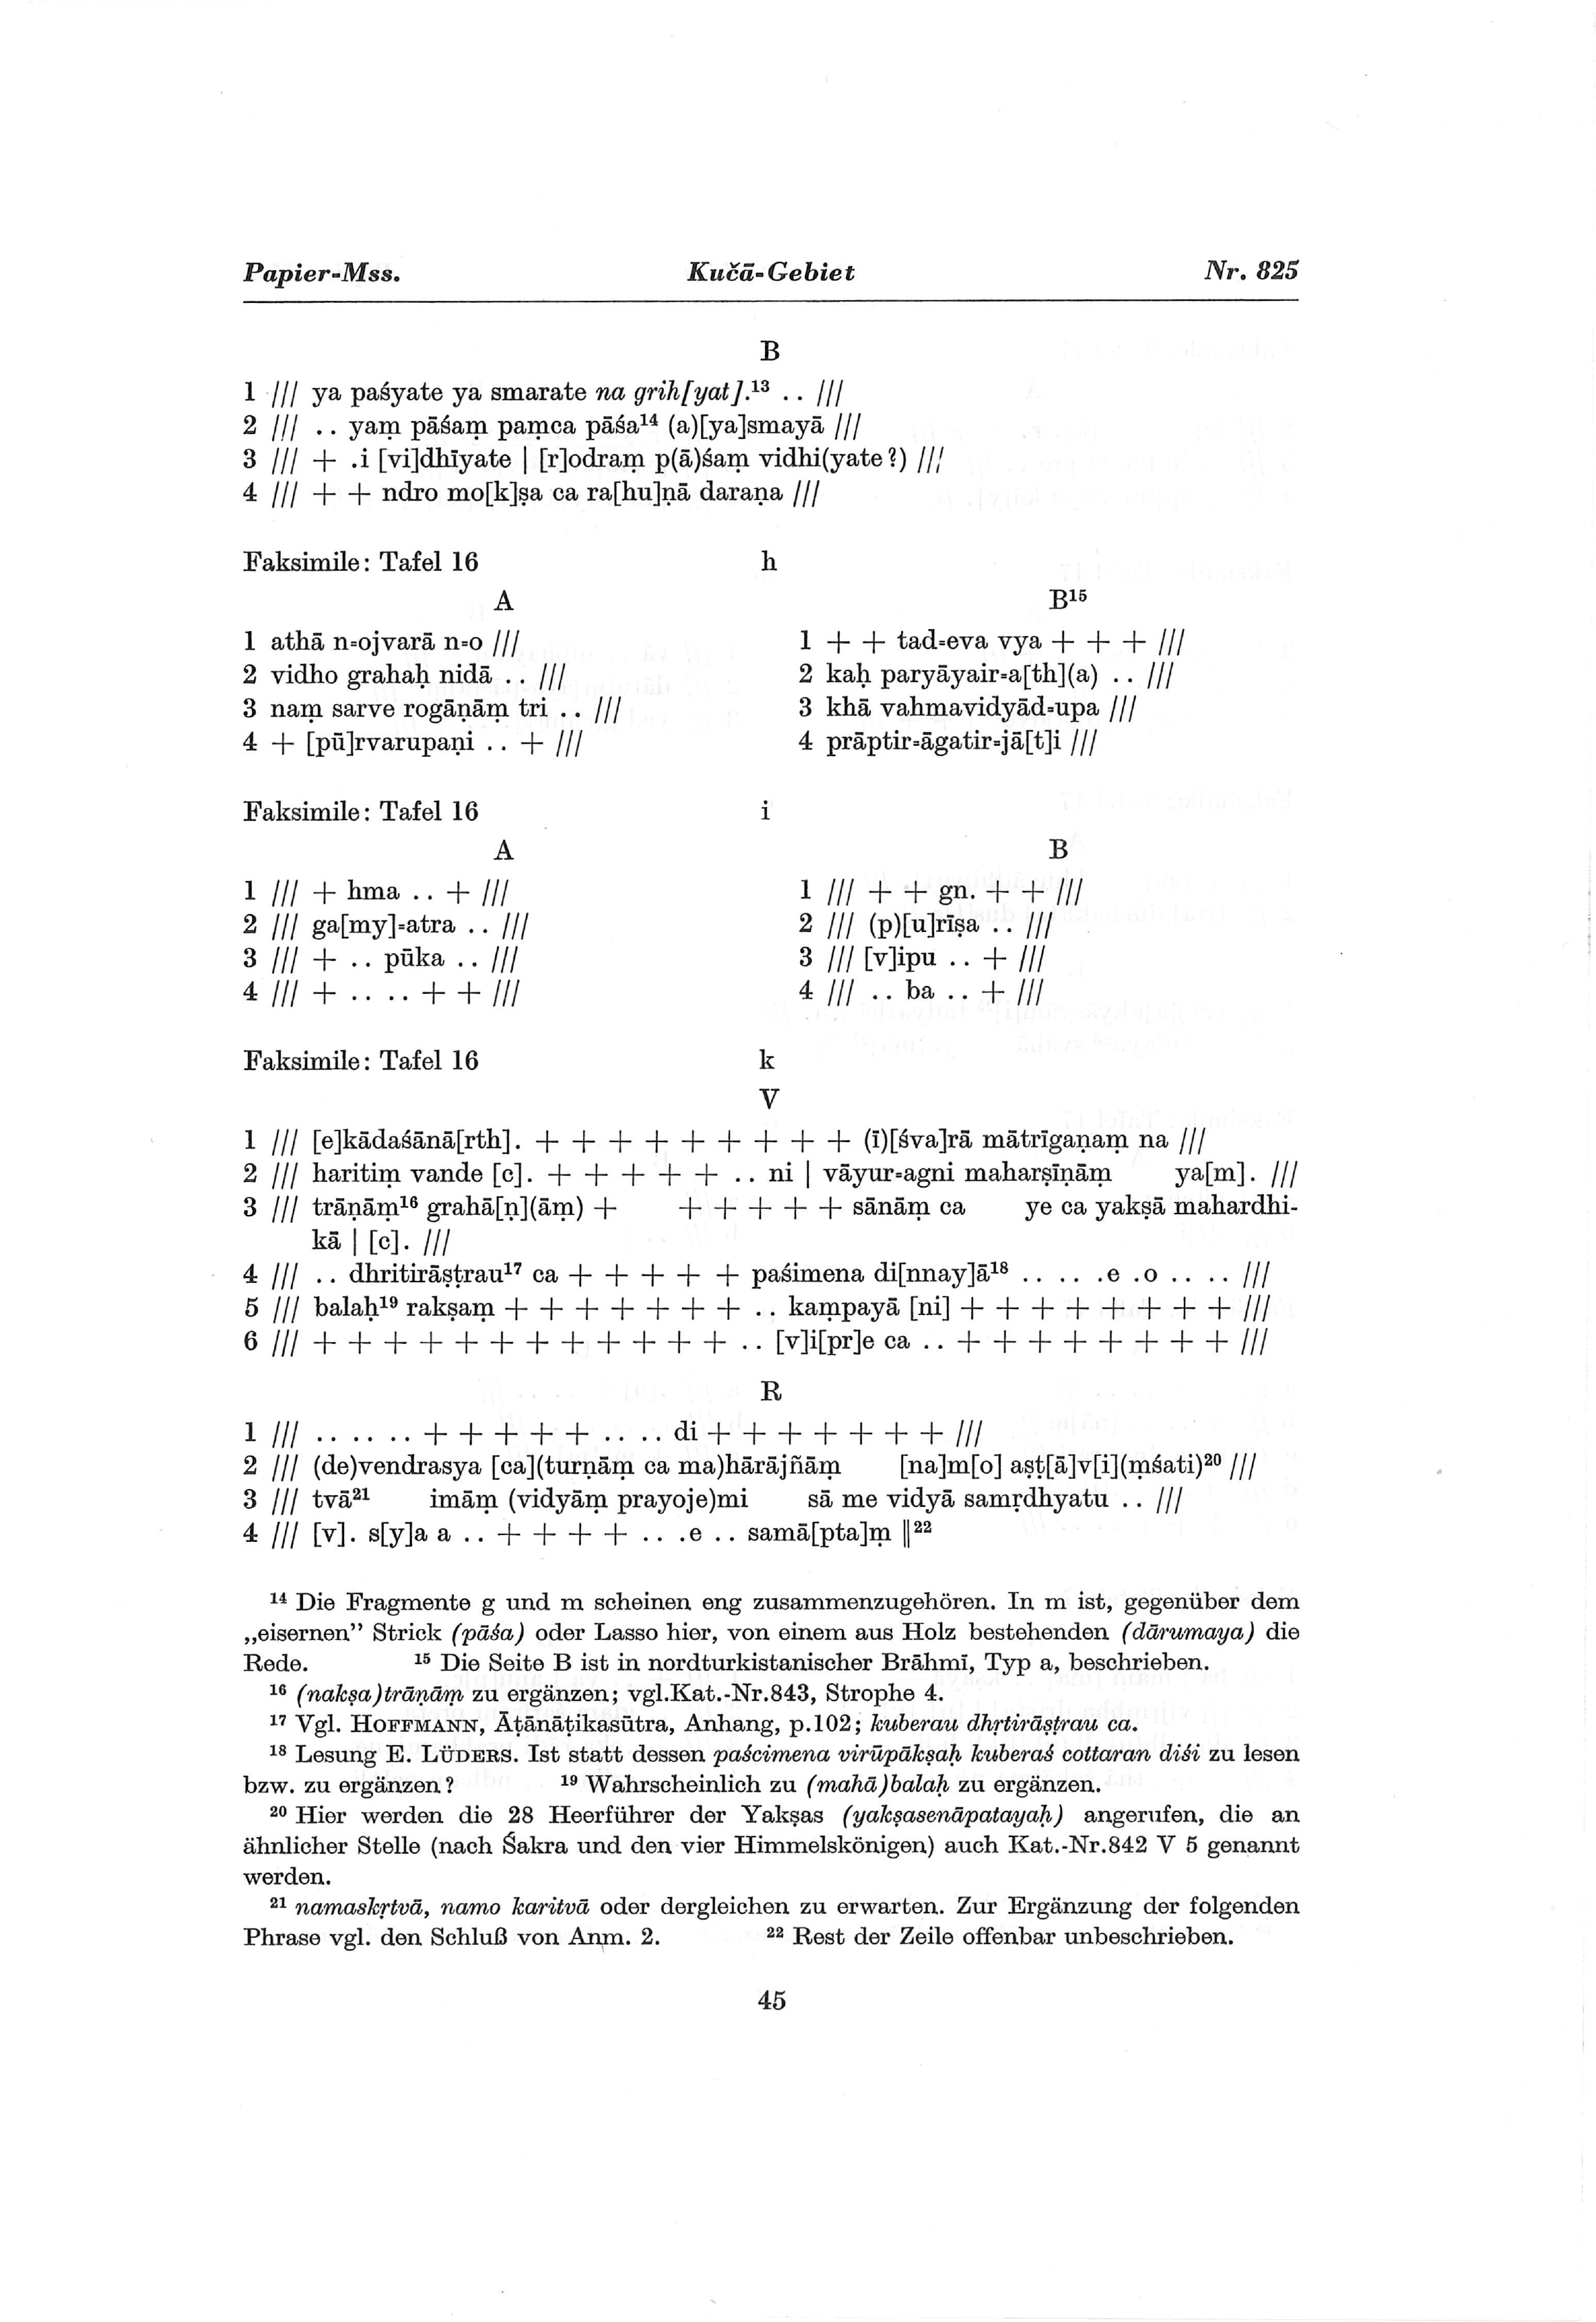 Papier-Mss. Kučā-Gebiet Nr. 825
B
1 /// ya paśyate ya smarate na grih[yat].¹³ .. ///
2 /// .. yaṃ pāśaṃ paṃca pāśa¹⁴ (a)[ya]smayā ///
3 /// + .i [vi]dhīyate | [r]odraṃ p(ā)śaṃ vidhi(yate?) ///
4 /// + + ndro mo[k]ṣa ca ra[hu]ṇā daraṇa ///
Faksimile: Tafel 16 h
A
1 athā n=ojvarā n=o ///
2 vidho grahaḥ nidā .. ///
3 naṃ sarve rogāṇāṃ tri .. ///
4 + [pū]rvarupaṇi .. + ///
B¹⁵
1 + + tad=eva vya + + + ///
2 kaḥ paryāyair=a[th](a) .. ///
3 khā vahmavidyād=upa ///
4 prāptir=āgatir=jā[t]i ///
Faksimile: Tafel 16 i
A
1 /// + hma .. + ///
2 /// ga[my]=atra .. ///
3 /// + .. pūka .. ///
4 /// + .. .. + + ///
B
1 /// + + gn. + + ///
2 /// (p)[u]rīṣa .. ///
3 /// [v]ipu .. + ///
4 /// .. ba .. + ///
Faksimile: Tafel 16 k
V
1 /// [e]kādaśānā[rth]. + + + + + + + + + (ī)[śva]rā mātrīgaṇaṃ na ///
2 /// haritiṃ vande [c]. + + + + + .. ni | vāyur=agni maharṣīṇāṃ ya[m]. ///
3 /// trāṇāṃ¹⁶ grahā[ṇ](āṃ) + + + + + + sānāṃ ca ye ca yakṣā mahardhi-
kā | [c]. ///
4 /// .. dhritirāṣṭrau¹⁷ ca + + + + + paśimena di[nnay]ā¹⁸ .. .. .e .o .. .. ///
5 /// balaḥ¹⁹ rakṣaṃ + + + + + + + .. kaṃpayā [ni] + + + + + + + + ///
6 /// + + + + + + + + + + + + .. [v]i[pr]e ca .. + + + + + + + + ///
R
1 /// .. .. .. + + + + + .. .. di + + + + + + + ///
2 /// (de)vendrasya [ca](turṇāṃ ca ma)hārājñāṃ [na]m[o] aṣṭ[ā]v[i](ṃśati)²⁰ ///
3 /// tvā²¹ imāṃ (vidyāṃ prayoje)mi sā me vidyā samṛdhyatu .. ///
4 /// [v]. s[y]a a .. + + + + .. .e .. samā[pta]ṃ ‖²²
¹⁴ Die Fragmente g und m scheinen eng zusammenzugehören. In m ist, gegenüber dem
„eisernen” Strick (pāśa) oder Lasso hier, von einem aus Holz bestehenden (dārumaya) die
Rede. ¹⁵ Die Seite B ist in nordturkistanischer Brāhmī, Typ a, beschrieben.
¹⁶ (nakṣa)trāṇāṃ zu ergänzen; vgl.Kat.-Nr.843, Strophe 4.
¹⁷ Vgl. HOFFMANN, Āṭānāṭikasūtra, Anhang, p.102; kuberau dhṛtirāṣṭrau ca.
¹⁸ Lesung E. LÜDERS. Ist statt dessen paścimena virūpākṣaḥ kuberaś cottaran diśi zu lesen
bzw. zu ergänzen? ¹⁹ Wahrscheinlich zu (mahā)balaḥ zu ergänzen.
²⁰ Hier werden die 28 Heerführer der Yakṣas (yakṣasenāpatayaḥ) angerufen, die an
ähnlicher Stelle (nach Śakra und den vier Himmelskönigen) auch Kat.-Nr.842 V 5 genannt
werden.
²¹ namaskṛtvā, namo karitvā oder dergleichen zu erwarten. Zur Ergänzung der folgenden
Phrase vgl. den Schluß von Anm. 2. ²² Rest der Zeile offenbar unbeschrieben.
45